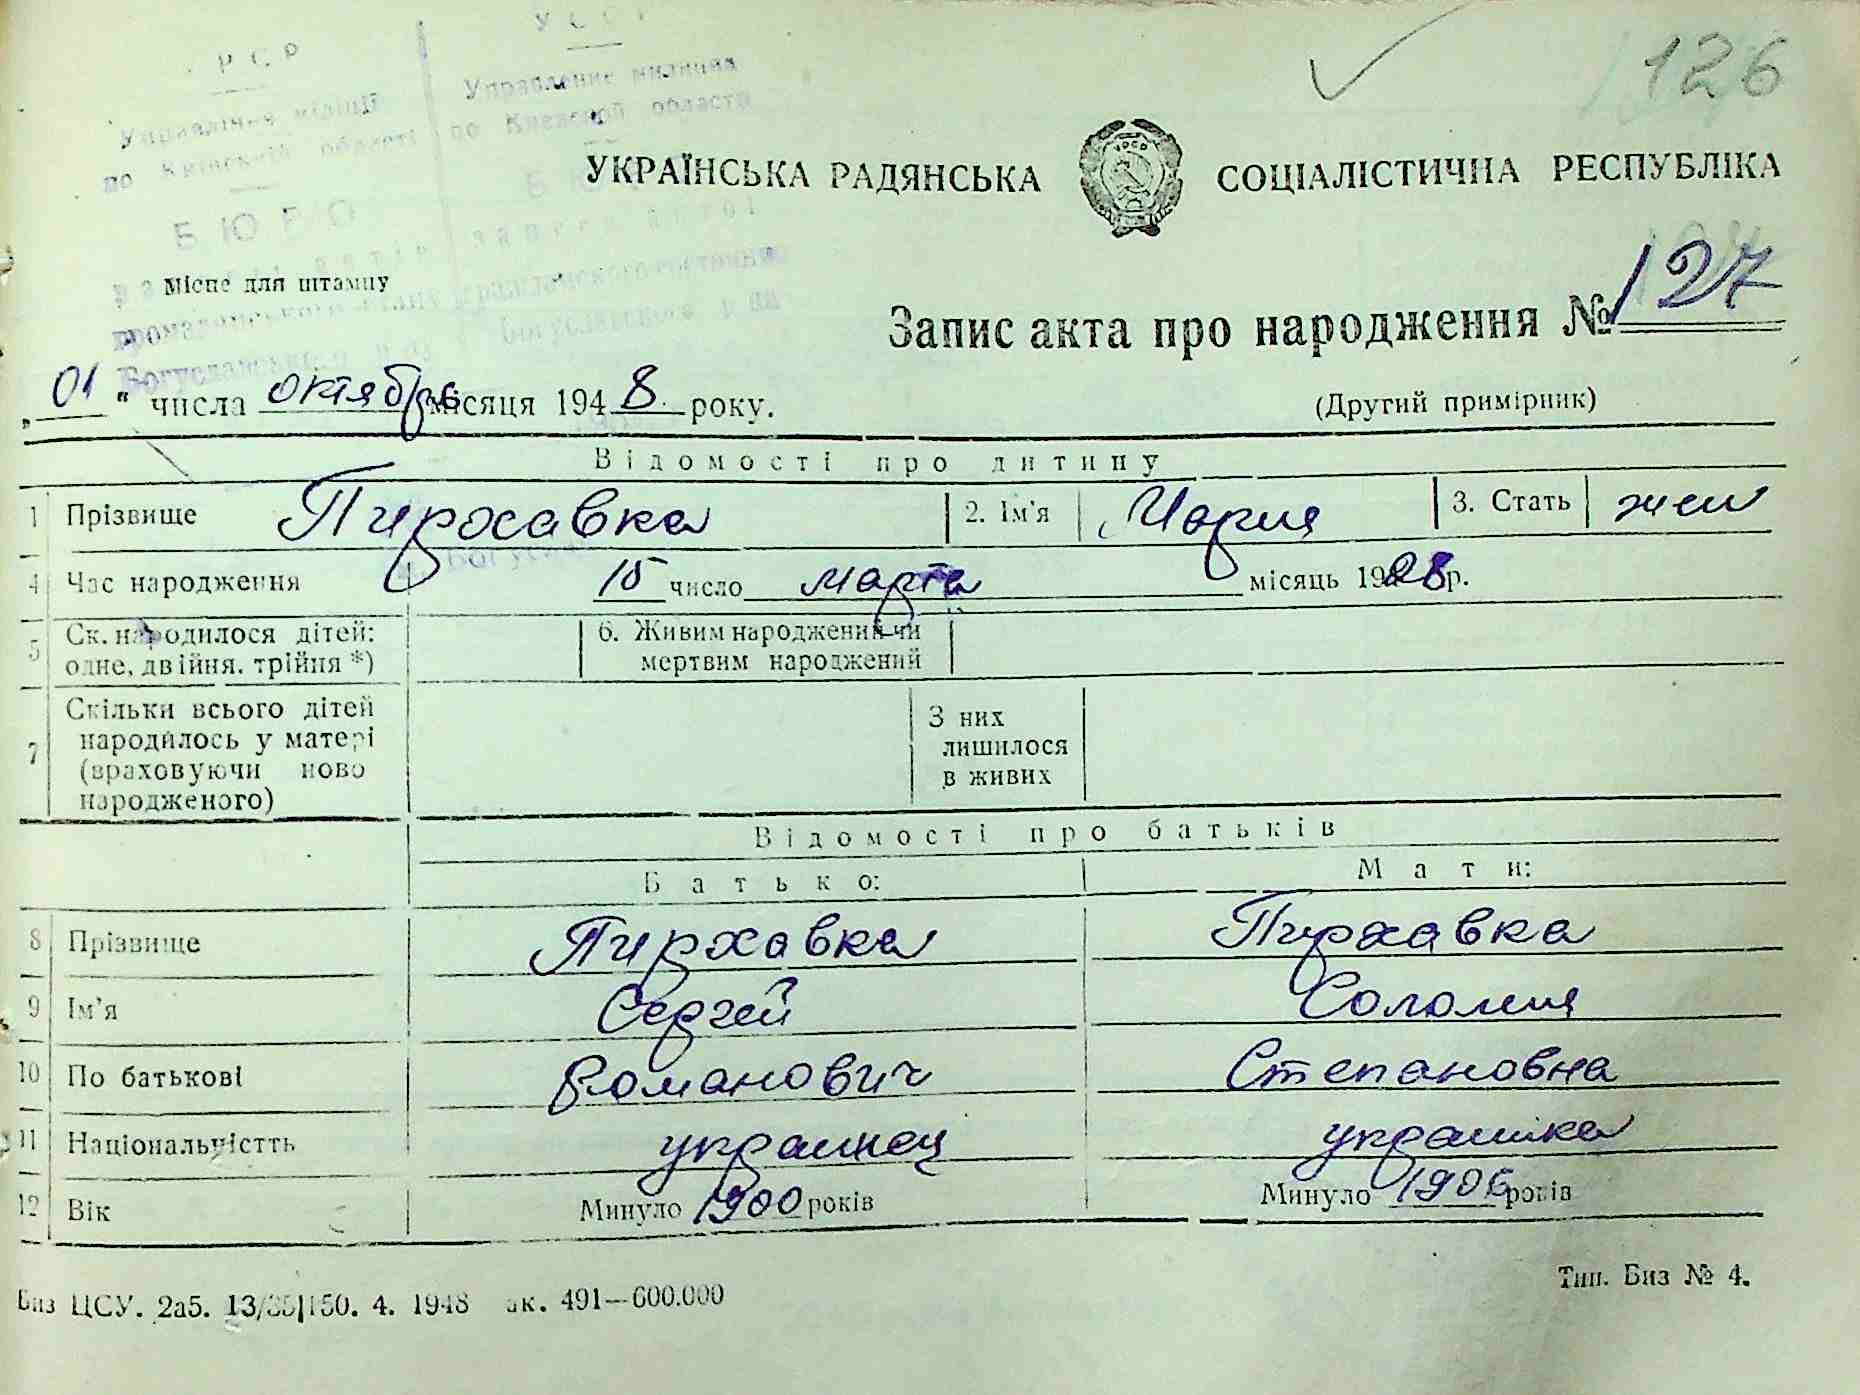 126
Р С Р
Управління міліції
по Київській області
БЮРО
У С С Р
Управление милиции
по Киевской области
УКРАЇНСЬКА РАДЯНСЬКА СОЦІАЛІСТИЧНА РЕСПУБЛІКА
Місце для штампу
Запис акта про народження № 127
„01“ числа октября місяця 1948 року.
(Другий примірник)
Відомості про дитину
1 Прізвище Пирхавка 2. Ім'я Мария 3. Стать жен
4 Час народження 15 число марта місяць 1928 р.
5 Ск. народилося дітей: одне, двійня, трійня *) 6. Живим народжений чи мертвим народжений
7 Скільки всього дітей народилось у матері (враховуючи ново народженого) З них лишилося в живих
Відомості про батьків
Батько: Мати:
8 Прізвище Пирхавка Пирхавка
9 Ім'я Сергей Соломия
10 По батькові Романович Степановна
11 Національністть украинец украинка
12 Вік Минуло 1900 років Минуло 1906 років
ЦСУ. 2а5. 13/35|150. 4. 1948 491—600.000
Тип. Биз № 4.